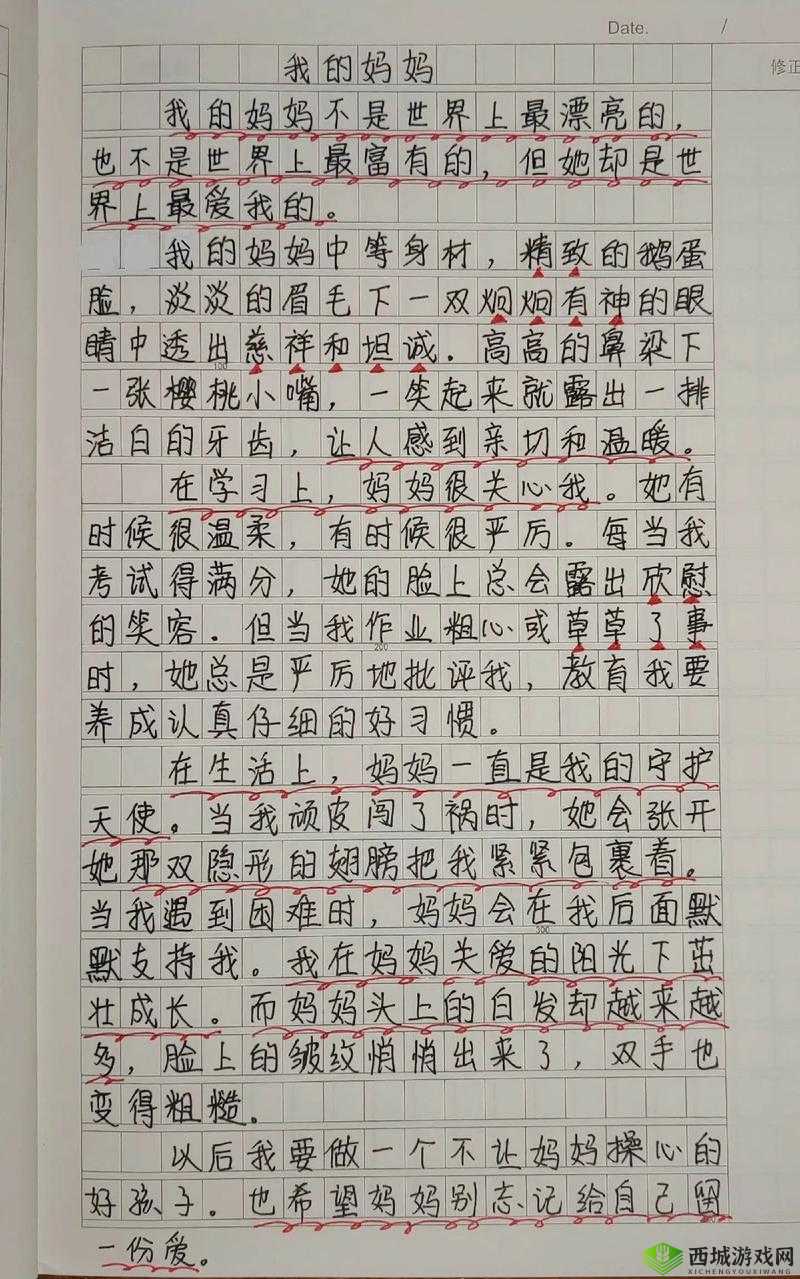 Date. /
修正
我的妈妈
我的妈妈不是世界上最漂亮的,
也不是世界上最富有的,但她却是世
界上最爱我的。
我的妈妈中等身材,精致的鹅蛋
脸,淡淡的眉毛下一双炯炯有神的眼
睛中透出慈祥和坦诚.高高的鼻梁下
100
一张樱桃小嘴,一笑起来就露出一排
洁白的牙齿,让人感到亲切和温暖。
在学习上,妈妈很关心我。她有
时候很温柔,有时候很严厉.每当我
考试得满分,她的脸上总会露出欣慰
的笑容.但当我作业粗心或草草了事
200
时,她总是严厉地批评我,教育我要
养成认真仔细的好习惯。
在生活上,妈妈一直是我的守护
天使。当我顽皮闯了祸时,她会张开
她那双隐形的翅膀把我紧紧包裹着。
当我遇到困难时,妈妈会在我后面默
300
默支持我。我在妈妈关爱的阳光下茁
壮成长。而妈妈头上的白发却越来越
多,脸上的皱纹悄悄出来了,双手也
变得粗糙。
以后我要做一个不让妈妈操心的
好孩子.也希望妈妈别忘记给自己留
一份爱。
西城游戏网
XICHENGYOUXIWANG